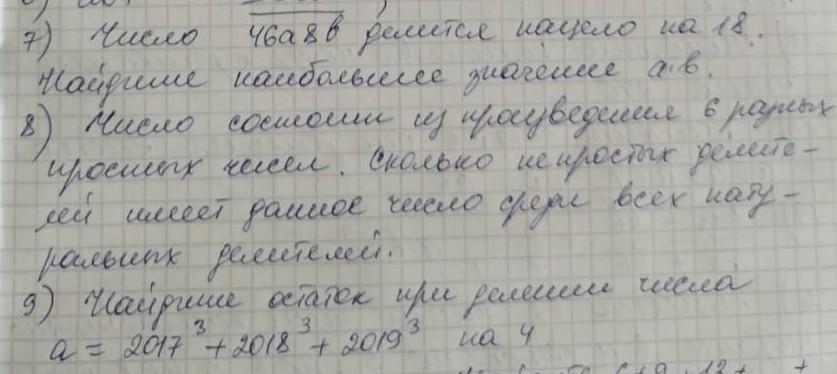 7) Число 46a8b делится нацело на 18.
Найдите наибольшее значение a·b.
8) Число состоит из произведения 6 разных
простых чисел. Сколько непростых делите-
лей имеет данное число среди всех нату-
ральных делителей.
9) Найдите остаток при делении числа
a = 2017³ + 2018³ + 2019³ на 4